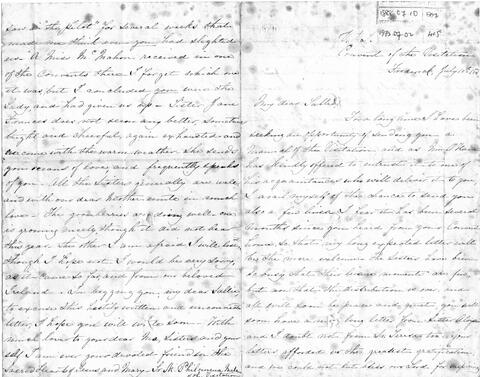 1886 07 10
Convent of the Visitation
Frederick, July 10th
My dear Sallie,
This long time I have been
seeking an opportunity of sending you a
Manual of the Visitation and as Mrs
has kindly offered to entrust it to one of
his acquaintances who will deliver it to you
I avail myself of the chance to send you
also a few lines. I fear it has been several
months since you heard from your Convent
home so that my long expected letter will
be the more welcome. The Sisters have been
so busy that their leisure moments are few
but now that the distribution is over and
all will soon be peace and quiet, you will
soon have a long letter from Sister
and I doubt not from Sr Teresa too. Your
letters afforded us the greatest gratification
and we could not but bless our Lord for
saw in "the Pilot" for several weeks that
made me think even you had slighted
us. A Miss McMahon received in one
of the Convents there I forget which one
it was but I concluded you were the
Lady and had given us up. Sister Jane
Frances does not seem any better, sometimes
bright and cheerful, again exhausted and
overcome with the warm weather. She sends
you oceans of love, and frequently speaks
of you. All the Sisters generally are well,
and with our dear Mother unite in much
love. The are doing well one
is growing nicely though it did not bear
this year. The other I am afraid I will lose
though I hope not. I would be very sorry
as it came so far and from our beloved
Ireland. In begging you, my dear Sallie,
to excuse this hastily written and uncouth
letter, I hope you will write soon. With
much love to your dear Ma, Sisters and your
self I am ever your devoted friend in the
Sacred Heart of Jesus and Mary. Sr M. Philomena
Visitation